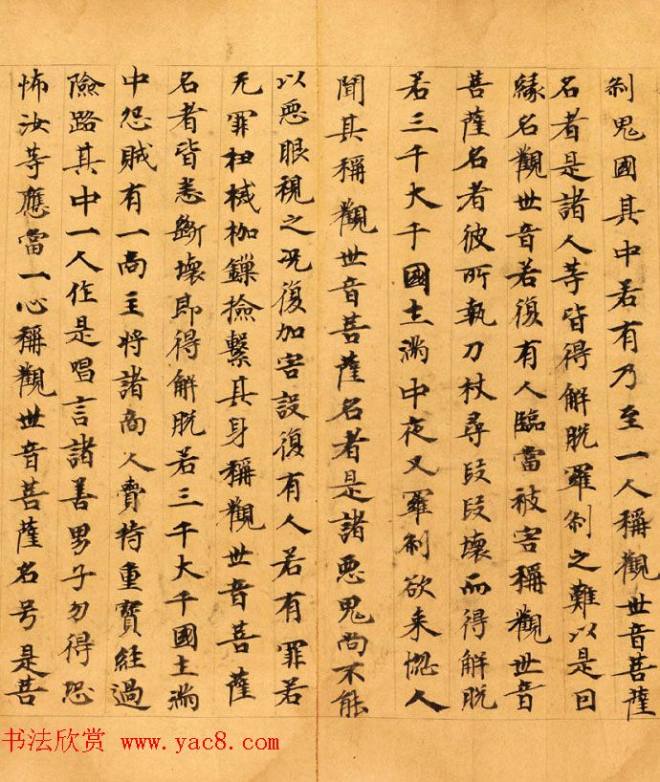 刹鬼國其中若有乃至一人稱觀世音菩薩
名者是諸人等皆得解脫羅刹之難以是因
緣名觀世音若復有人臨當被害稱觀世音
菩薩名者彼所執刀杖尋段段壞而得解脫
若三千大千國土滿中夜叉羅刹欲来惱人
聞其稱觀世音菩薩名者是諸惡鬼尚不能
以惡眼視之況復加害設復有人若有罪若
无罪杻械枷鏁撿繫其身稱觀世音菩薩
名者皆悉斷壞即得解脫若三千大千國土滿
中怨賊有一商主將諸商人賫持重寶經過
險路其中一人作是唱言諸善男子勿得恐
怖汝等應當一心稱觀世音菩薩名号是菩
书法欣赏 www.yac8.com